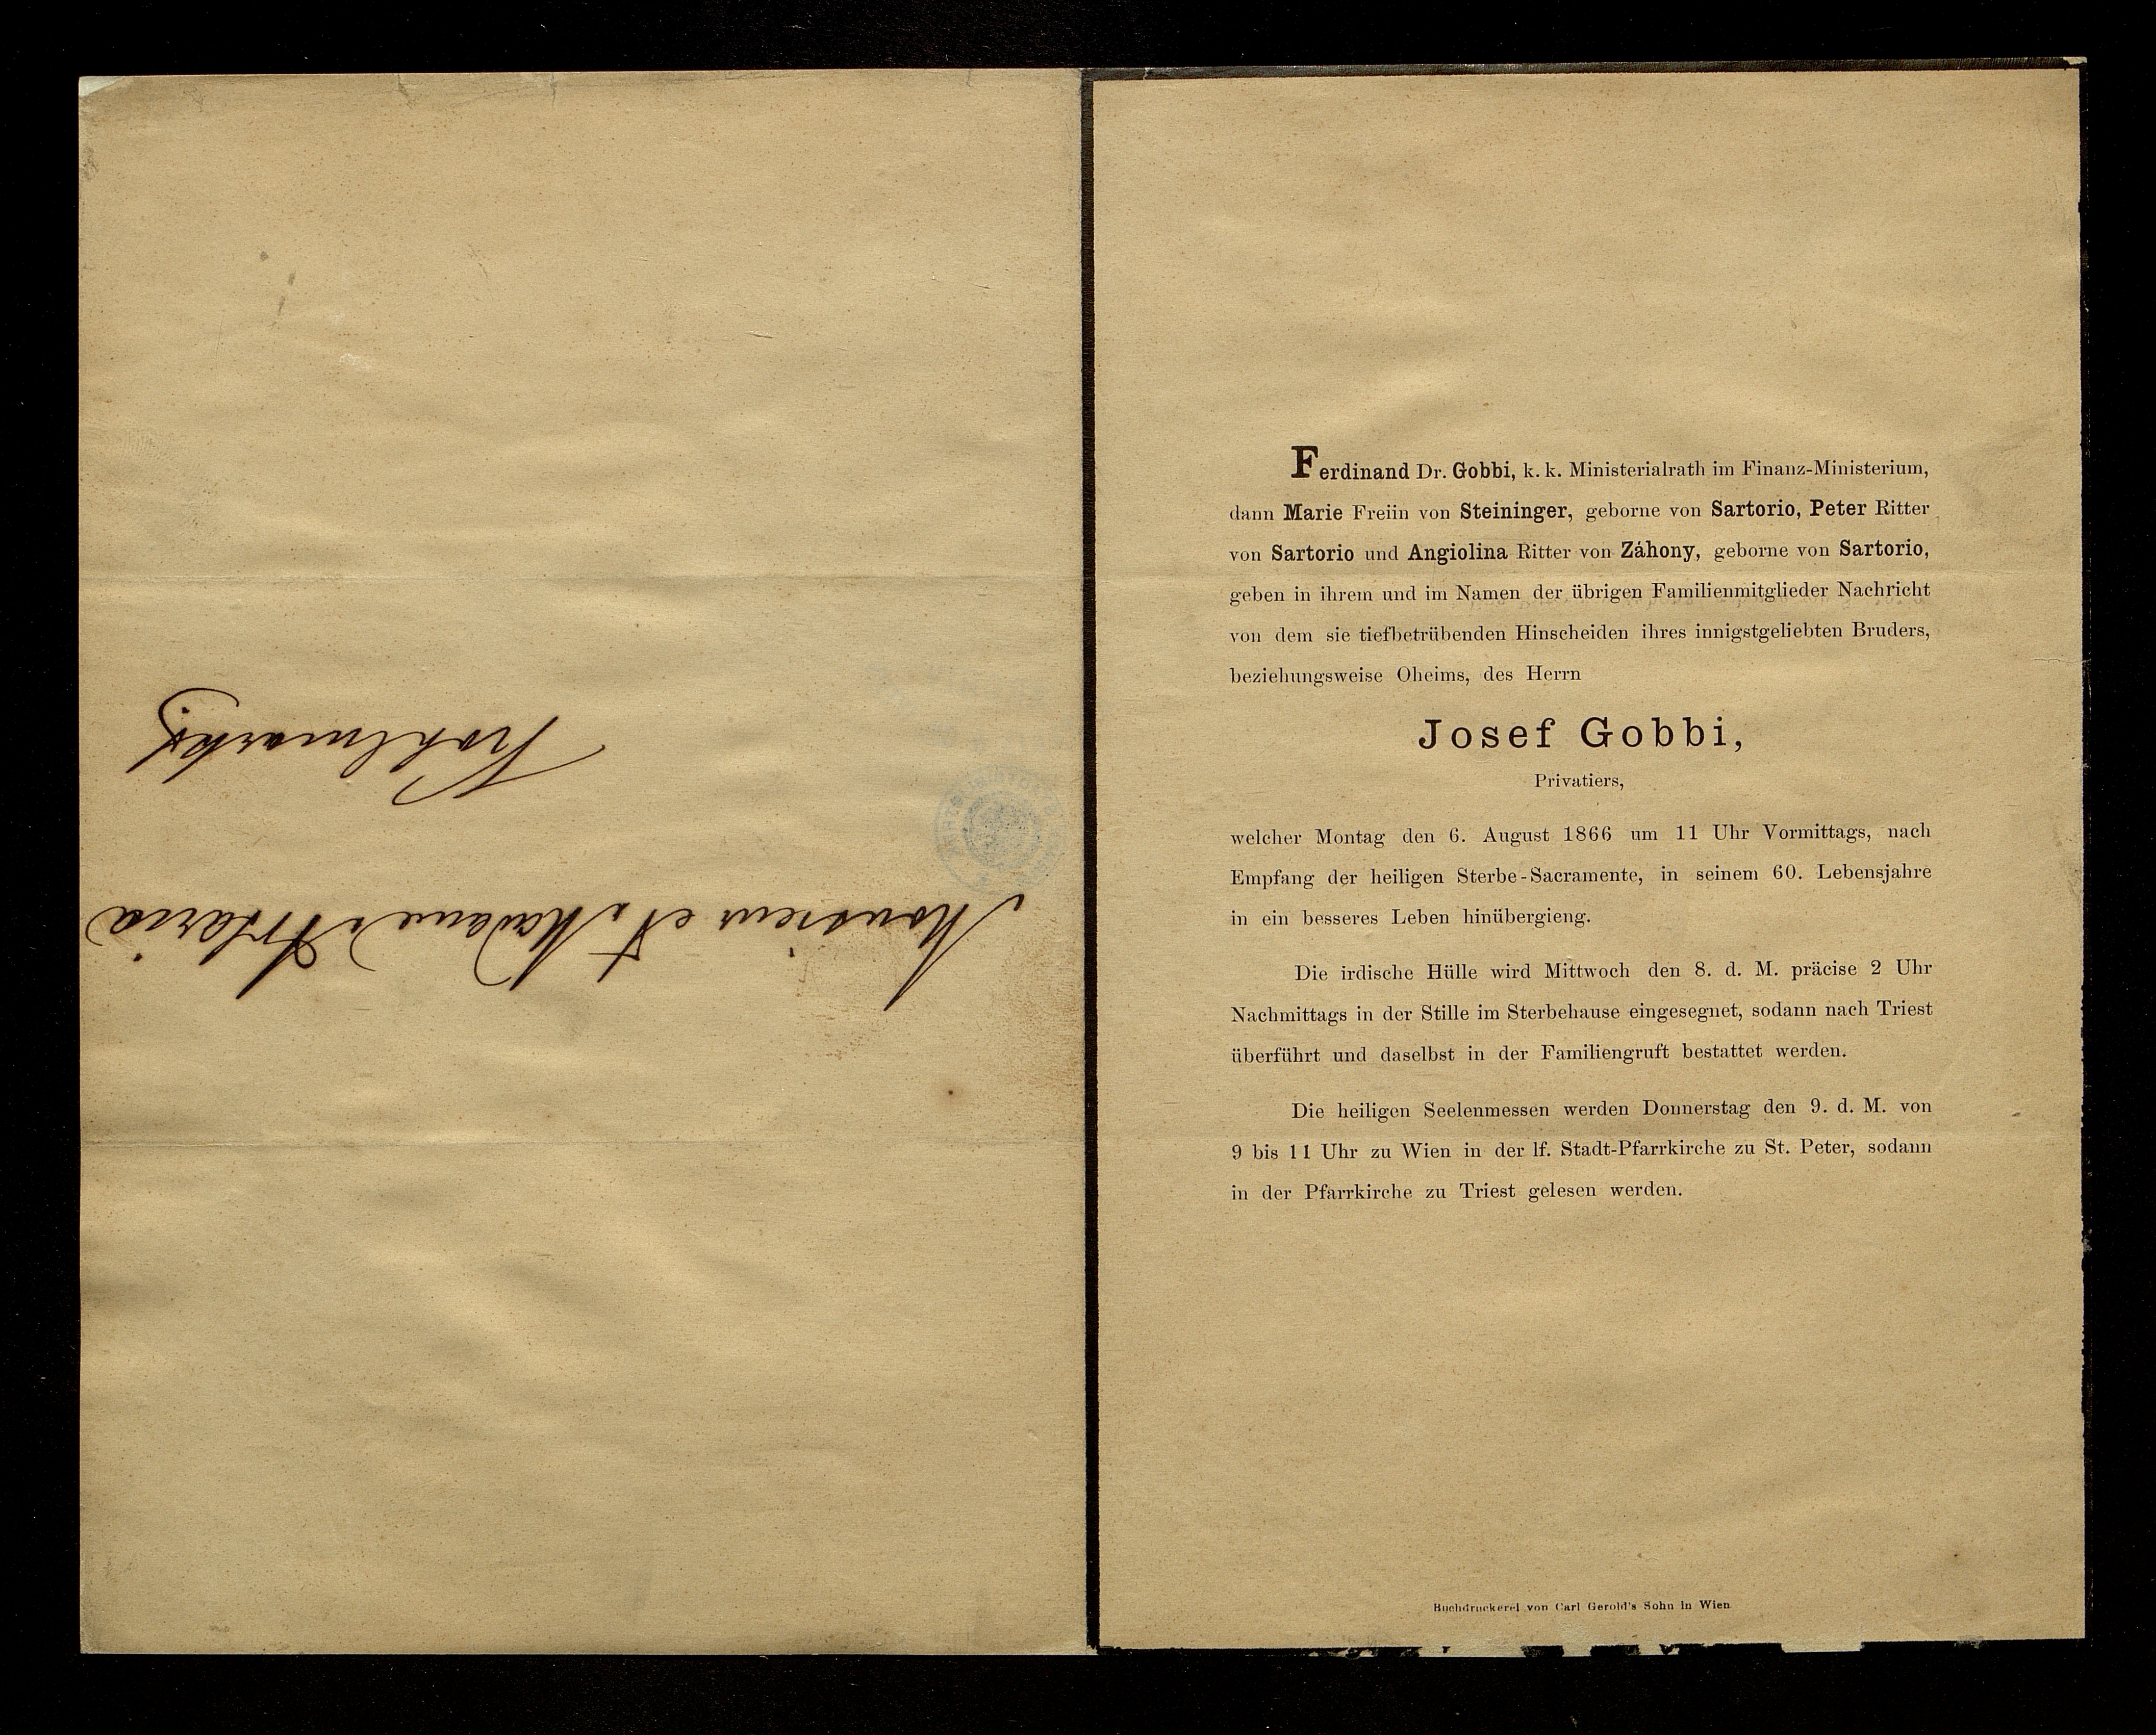 Monsieur et Madame Artaria
Kohlmarkt
Ferdinand Dr. Gobbi, k. k. Ministerialrath im Finanz-Ministerium,
dann Marie Freiin von Steininger, geborne von Sartorio, Peter Ritter
von Sartorio und Angiolina Ritter von Záhony, geborne von Sartorio,
geben in ihrem und im Namen der übrigen Familienmitglieder Nachricht
von dem sie tiefbetrübenden Hinscheiden ihres innigstgeliebten Bruders,
beziehungsweise Oheims, des Herrn
Josef Gobbi,
Privatiers,
welcher Montag den 6. August 1866 um 11 Uhr Vormittags, nach
Empfang der heiligen Sterbe-Sacramente, in seinem 60. Lebensjahre
in ein besseres Leben hinübergieng.
Die irdische Hülle wird Mittwoch den 8. d. M. präcise 2 Uhr
Nachmittags in der Stille im Sterbehause eingesegnet, sodann nach Triest
überführt und daselbst in der Familiengruft bestattet werden.
Die heiligen Seelenmessen werden Donnerstag den 9. d. M. von
9 bis 11 Uhr zu Wien in der lf. Stadt-Pfarrkirche zu St. Peter, sodann
in der Pfarrkirche zu Triest gelesen werden.
Buchdruckerei von Carl Gerold's Sohn in Wien